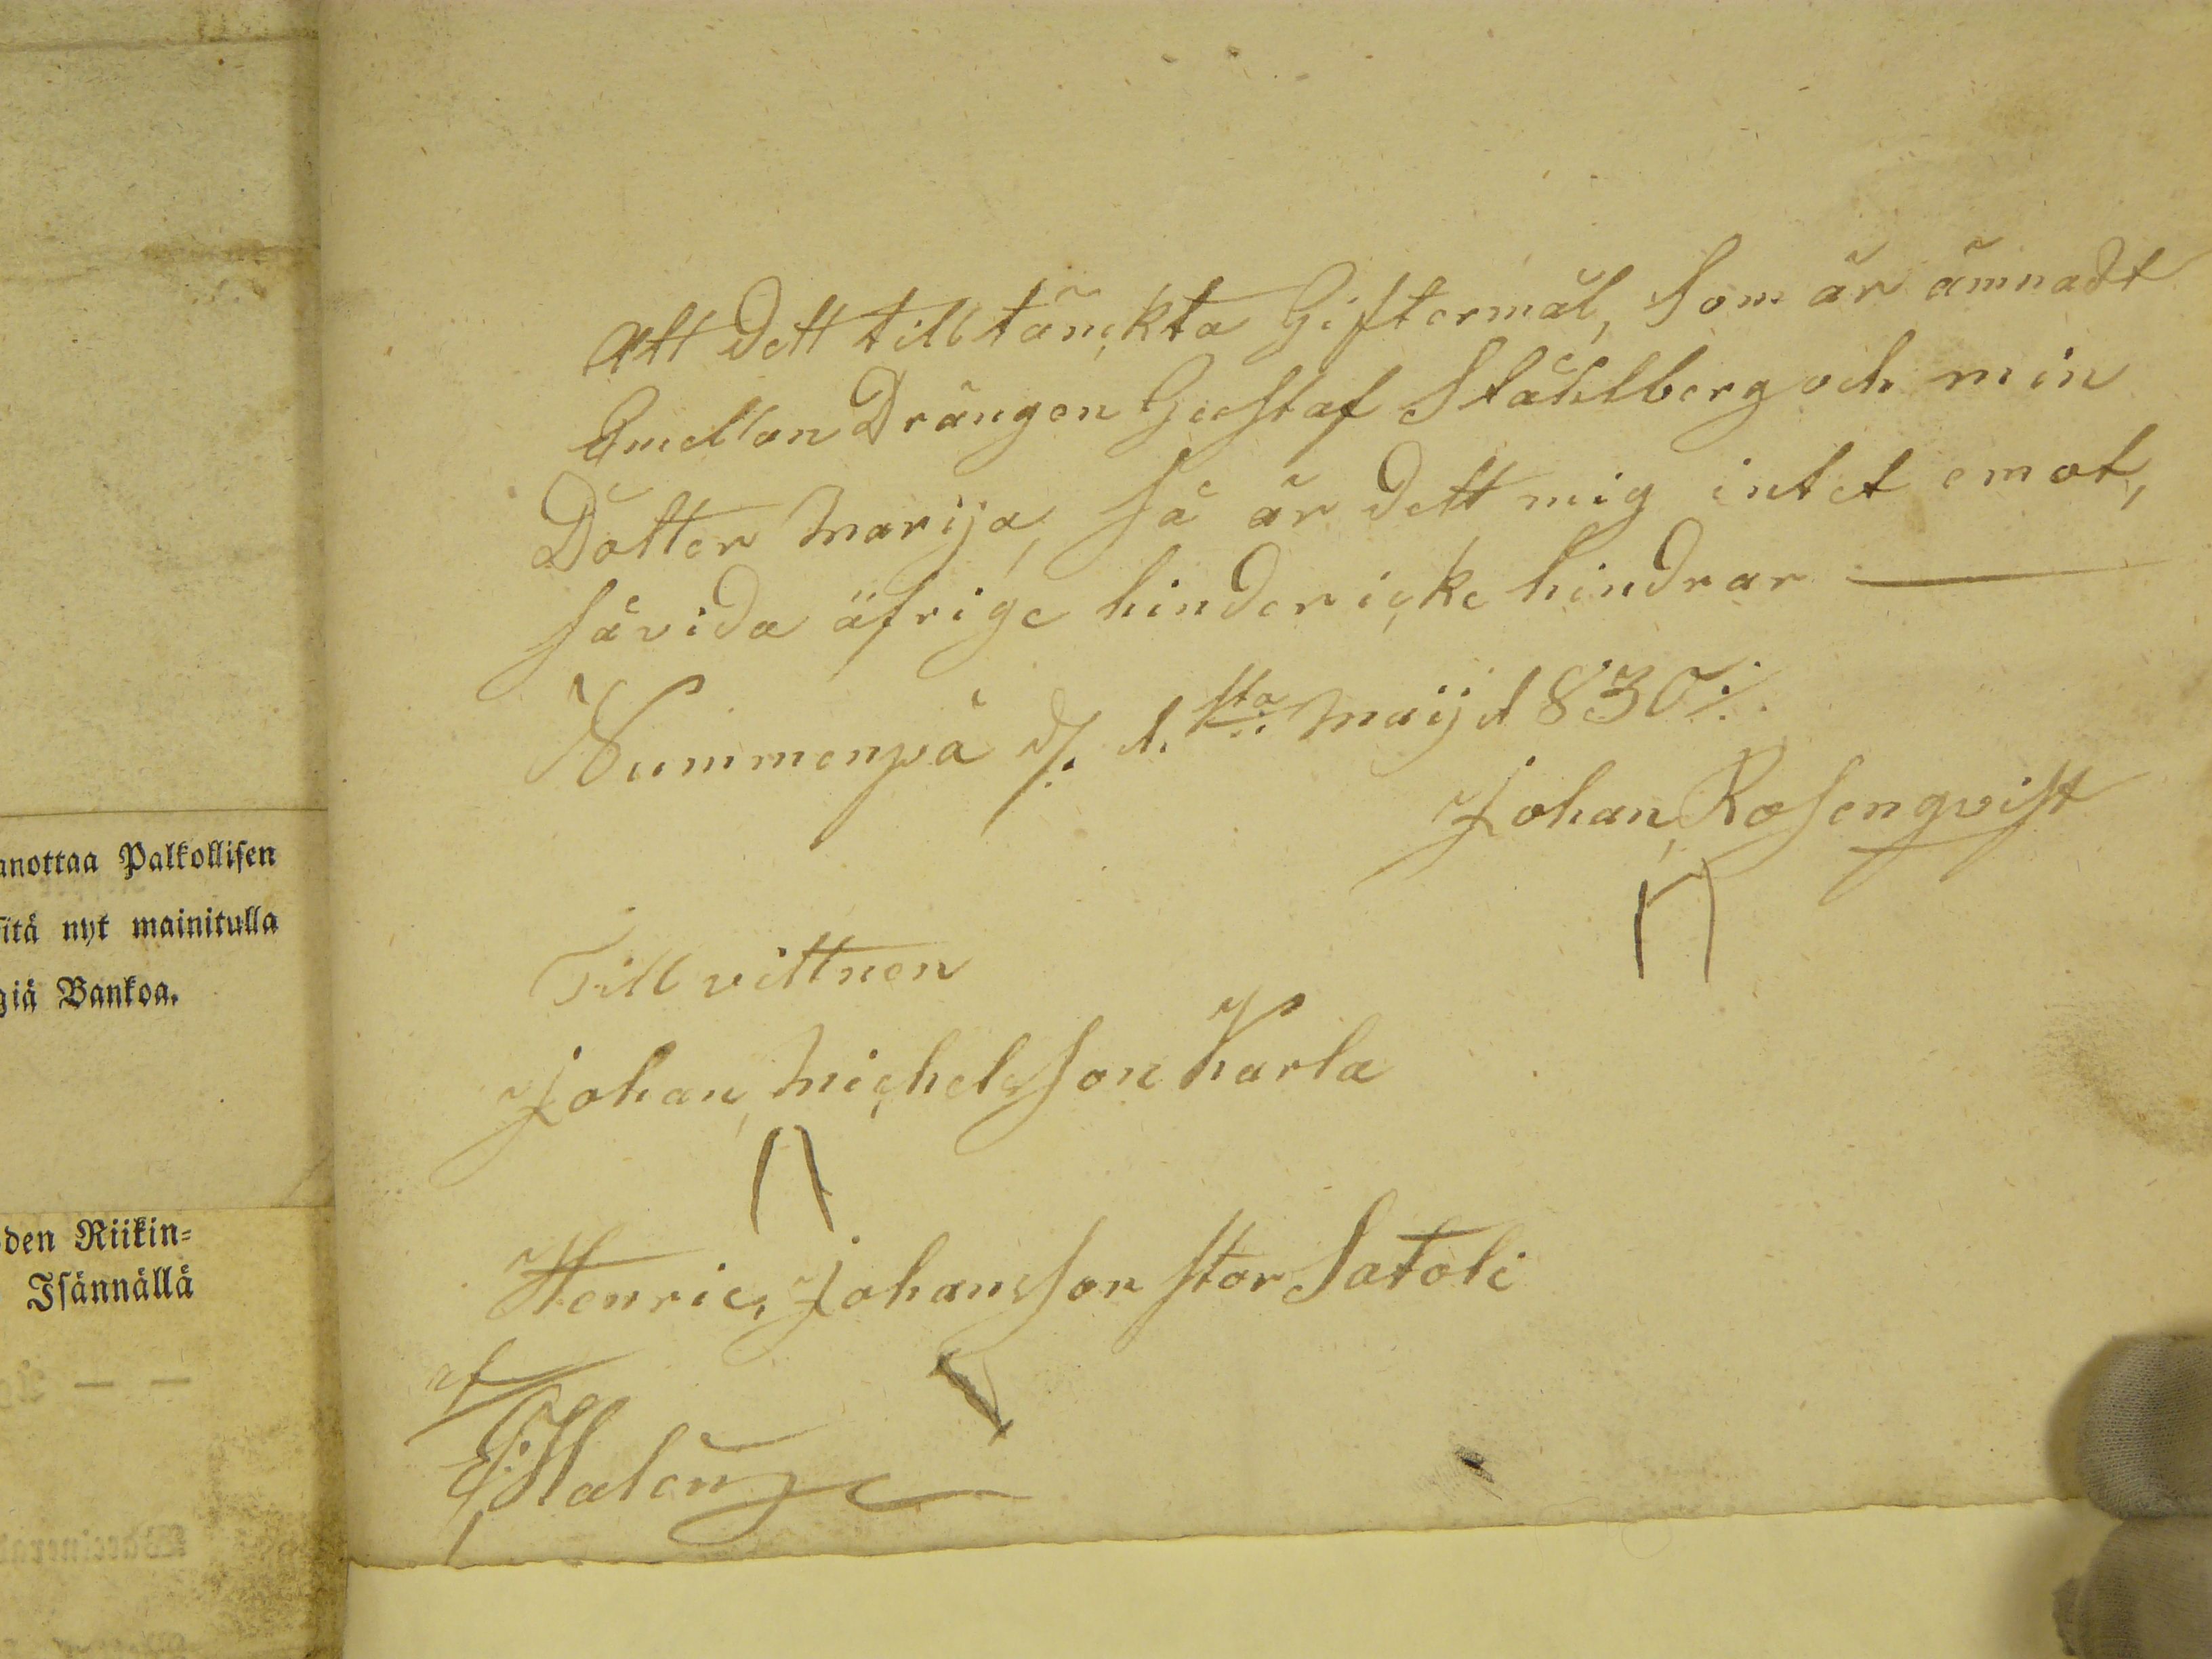 Att dett tilltänckta Giftermål, Som är ämnadt
Emellan Drängen Gustaf Ståhlberg och min
Dotter Marija, Så är dett mig intet emot,
Såvida äfrige hinder icke hindrar —
Nummenpä d/: 1.sta Maij 1830 ./.
Johan Rosenqvist
Till vittnen
Johan Michelsson Karla
Henric Johansson Stor Satoli
af
anottaa Palkollisen
sitä nyt mainitulla
giä Bankoa.
den Riikin=
Isännällä